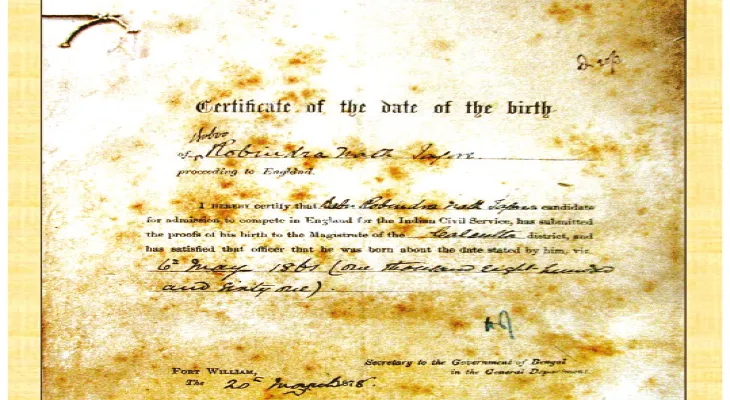 Certificate of the date of the birth
Babu
of Robindra Nath Tagore
proceeding to England.
I HEREBY certify that Babu Robindra Nath Tagore a candidate
for admission to compete in England for the Indian Civil Service, has submitted
the proofs of his birth to the Magistrate of the Calcutta district, and
has satisfied that officer that he was born about the date stated by him, viz
6th May 1861 (one thousand eight hundred
and sixty one).
Secretary to the Government of Bengal
in the General Department.
FORT WILLIAM,
The 20th 1878.